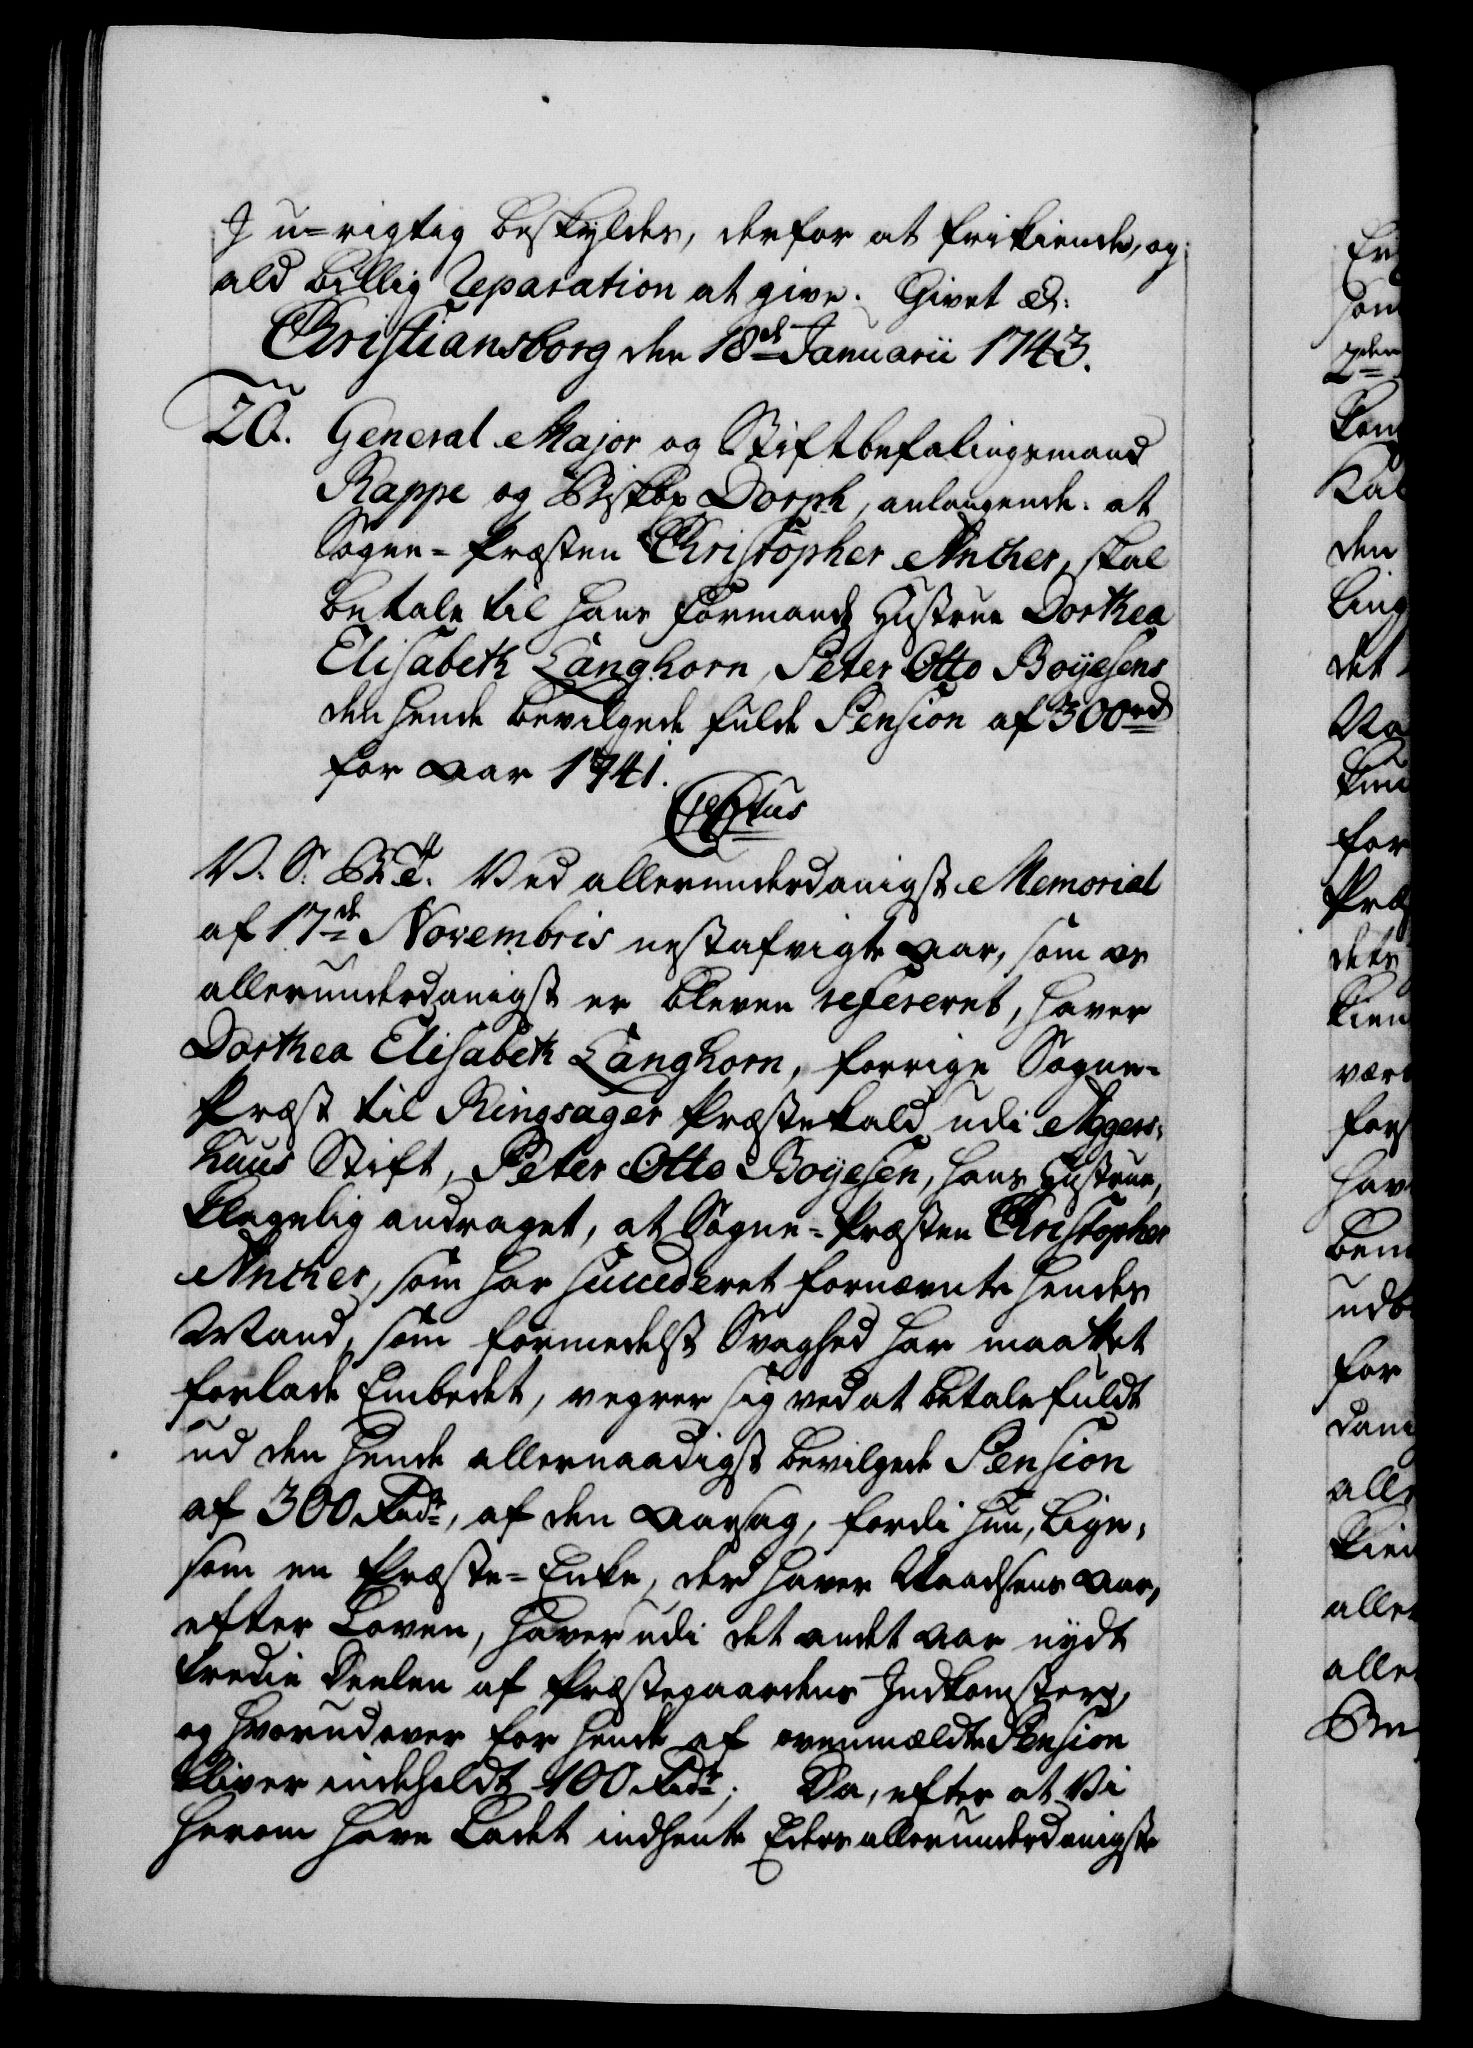 I u-rigtig beskyldes, derfor at frikiende, og
ald billig Reparation at give. Givet &.
Christiansborg den 18de Januarii 1743.
20. General Major og Stiftbefalingsmand
Rappe og Biskop Dorph, anlangende: at
Sogne-Præsten Christopher Ancher, skal
betale til hans Formands Hustrue Dorthea
Elisabeth Langhorn, Peter Otto Boÿesens
den hende bevilgede fulde Pension af 300rd
for Aar 1741.
V. S. G. T. Ved allerunderdanigst Memorial
af 17de Novembris nestafvigte Aar, som os
allerunderdanigst er bleven refereret, haver
Dorthea Elisabeth Langhorn, forrige Sogne-
Præst til Ringsager Præstekald udi Agers-
huus Stift, Peter Otto Boÿesen, hans Hustrue,
klagelig andraget, at Sogne-Præsten Christopher
Ancher, som har succederet fornævnte hendes
Mand, som formedelst Svaghed har maattet
forlade Embedet, vegrer sig ved at betale fuldt
ud den hende allernaadigst bevilgede Pension
af 300 Rdr, af den Aarsag, fordi hun, lige-
som en Præste-Enke, der haver Naadsens Aar,
efter Loven, haver udi det andet Aar nydt
tredie Deelen af Præstegaardens Indkomster,
og hvorudover for hende af ovenmældte Pension
bliver indeholdt 100 Rdr; Da, efter at Vi
herom have ladet indhente Eders allerunderdanigste